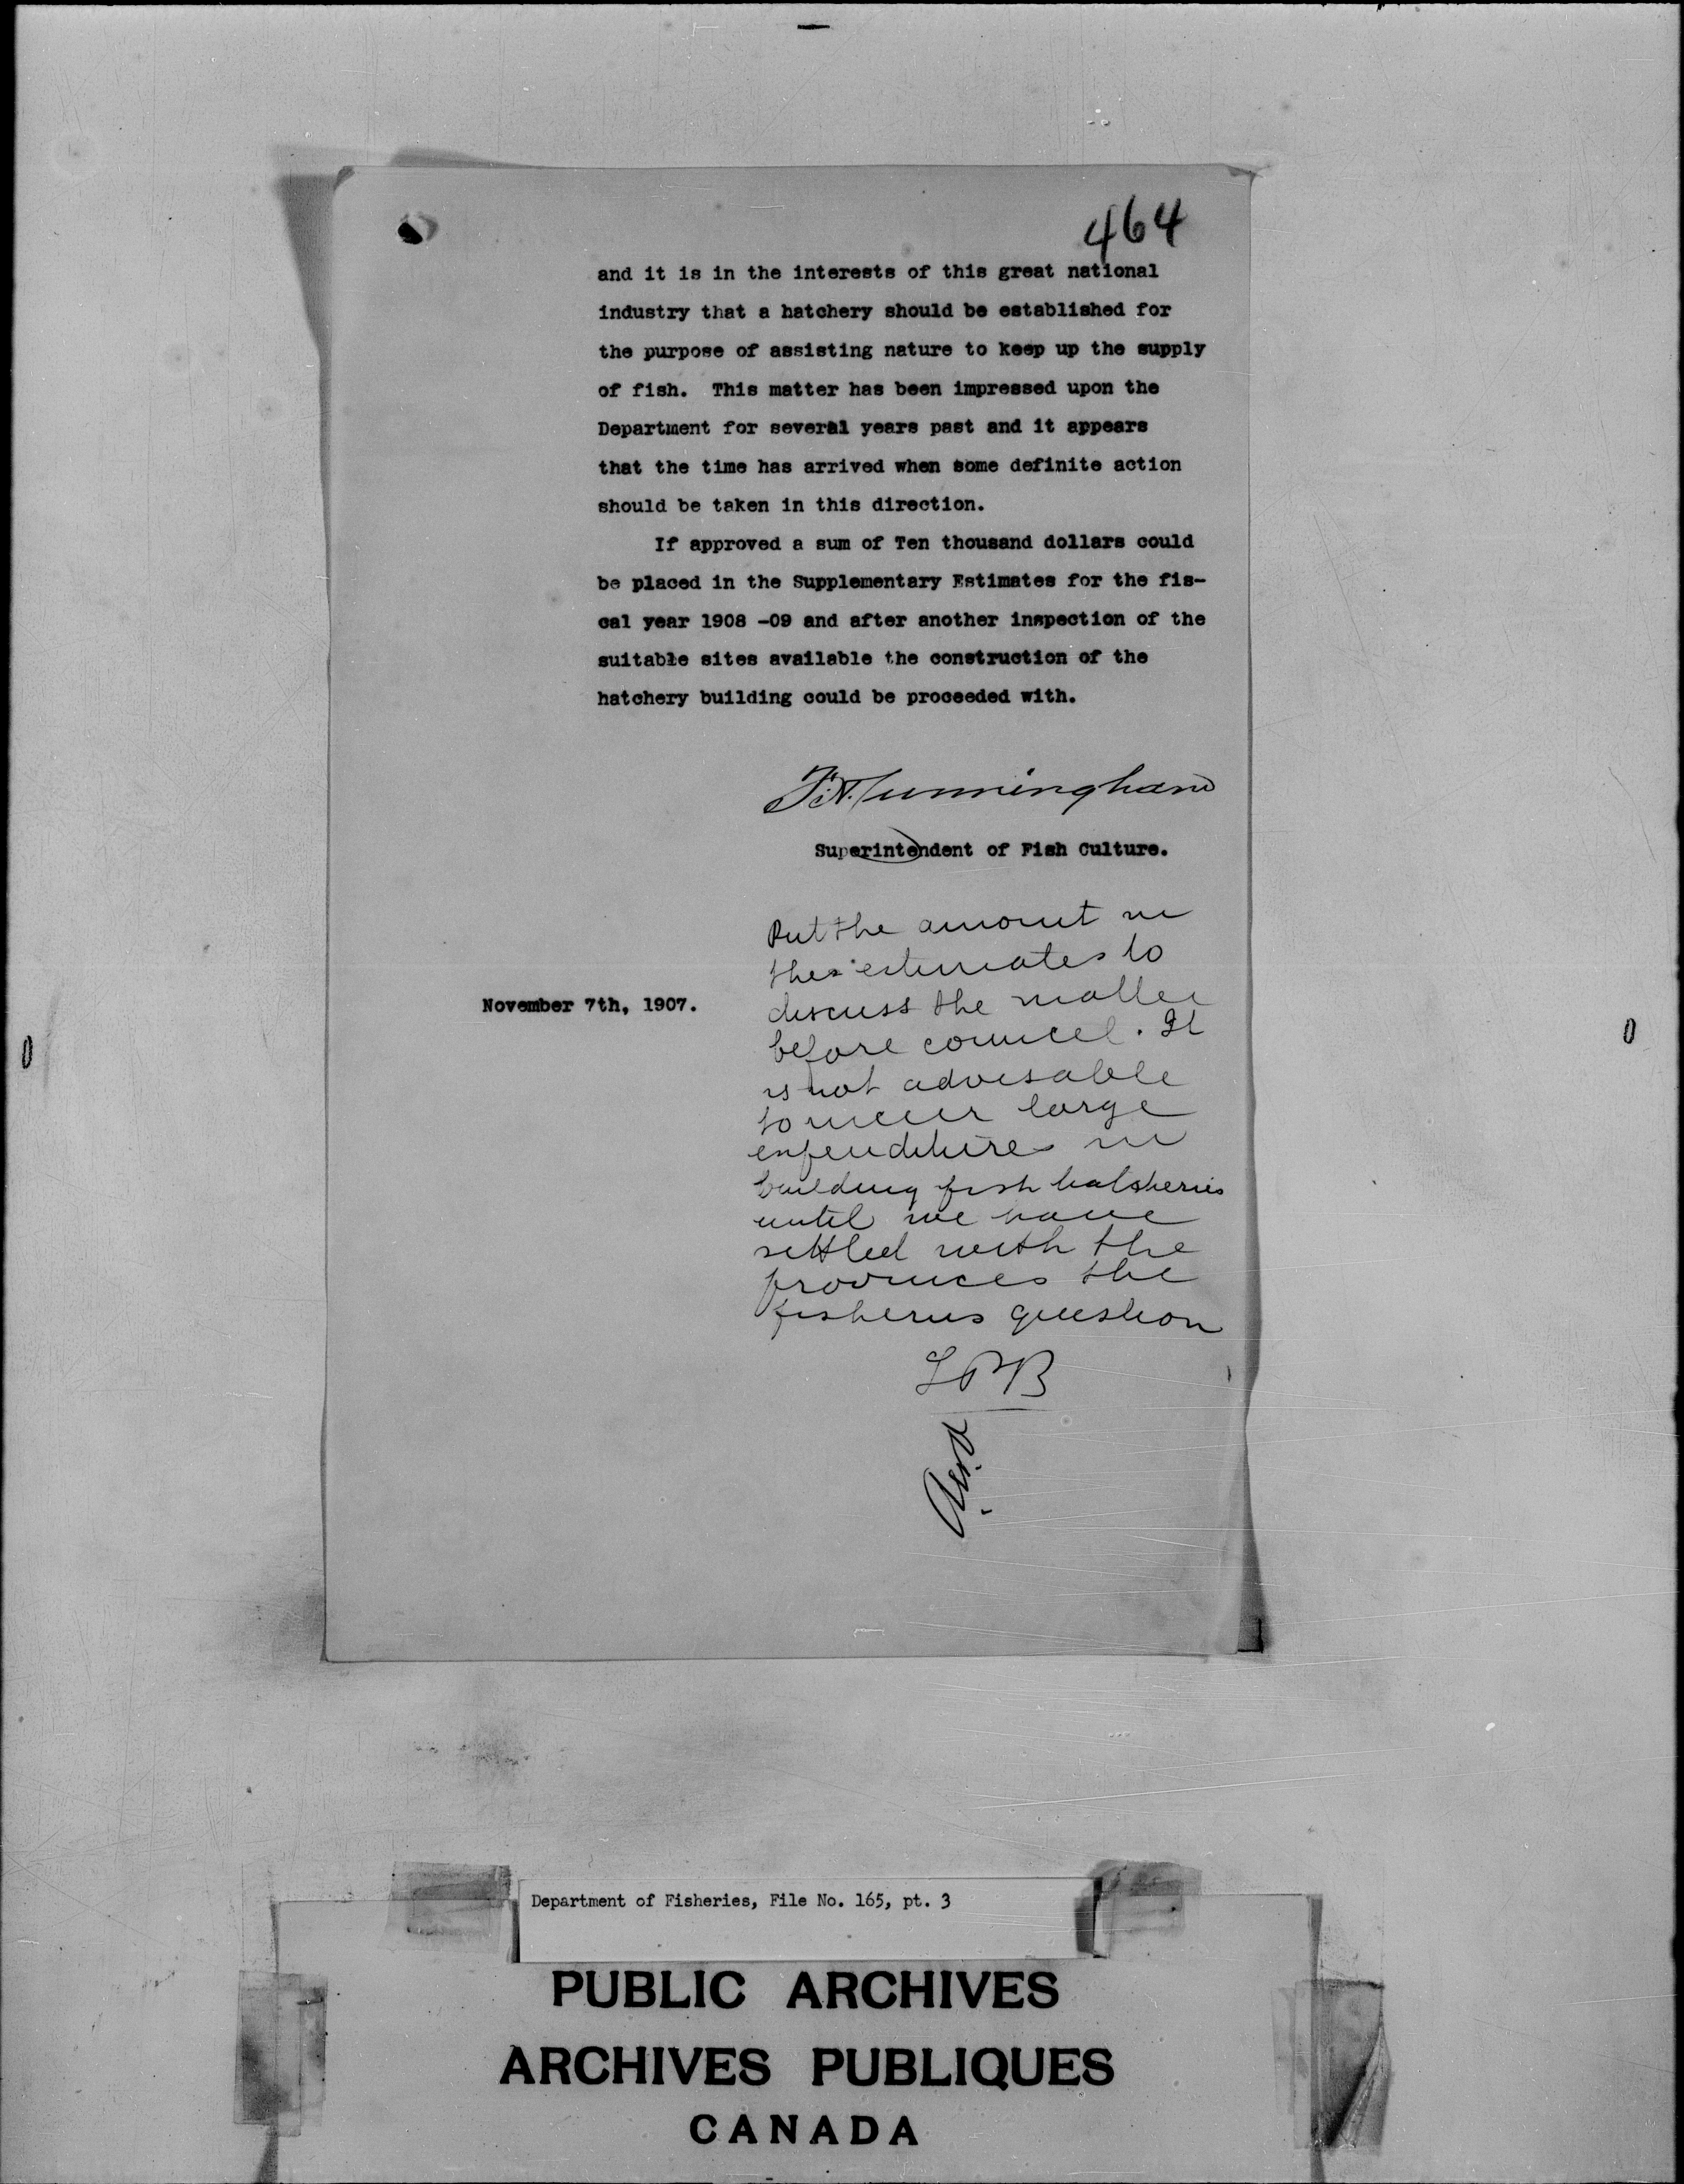 464
and it is in the interests of this great national
industry that a hatchery should be established for
the purpose of assisting nature to keep up the supply
of fish. This matter has been impressed upon the
Department for several years past and it appears
that the time has arrived when some definite action
should be taken in this direction.
If approved a sum of Ten thousand dollars could
be placed in the Supplementary Estimates for the fis-
cal year 1908 -09 and after another inspection of the
suitable sites available the construction of the
hatchery building could be proceeded with.
Cunningham
Superintendent of Fish Culture.
Put the amount in
the estimates to
discuss the matter
before council. It
is not advisable
to incur large
expenditures in
building fish hatcheries
until we have
settled with the
provinces the
fisheries question
LPB
November 7th, 1907.
Department of Fisheries, File No. 165, pt. 3
PUBLIC ARCHIVES
ARCHIVES PUBLIQUES
CANADA